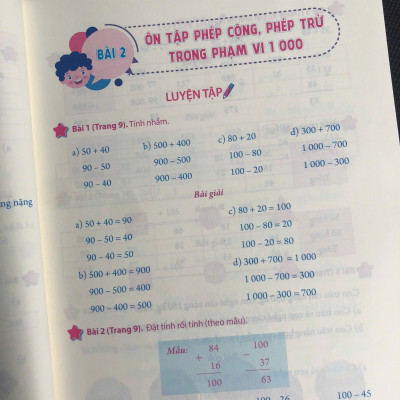 BÀI 2
ÔN TẬP PHÉP CỘNG, PHÉP TRỪ
TRONG PHẠM VI 1 000
LUYỆN TẬP
Bài 1 (Trang 9). Tính nhẩm.
a) 50 + 40 b) 500 + 400 c) 80 + 20 d) 300 + 700
90 – 50 900 – 500 100 – 80 1 000 – 700
90 – 40 900 – 400 100 – 20 1 000 – 300
ng nặng
Bài giải
a) 50 + 40 = 90 c) 80 + 20 = 100
90 – 50 = 40 100 – 80 = 20
90 – 40 = 50 100 – 20 = 80
b) 500 + 400 = 900 d) 300 + 700 = 1 000
900 – 500 = 400 1 000 – 700 = 300
900 – 400 = 500 1 000 – 300 = 700
Bài 2 (Trang 9). Đặt tính rồi tính (theo mẫu).
Mẫu: 84 100
+ –
16 37
100 63
100 – 45